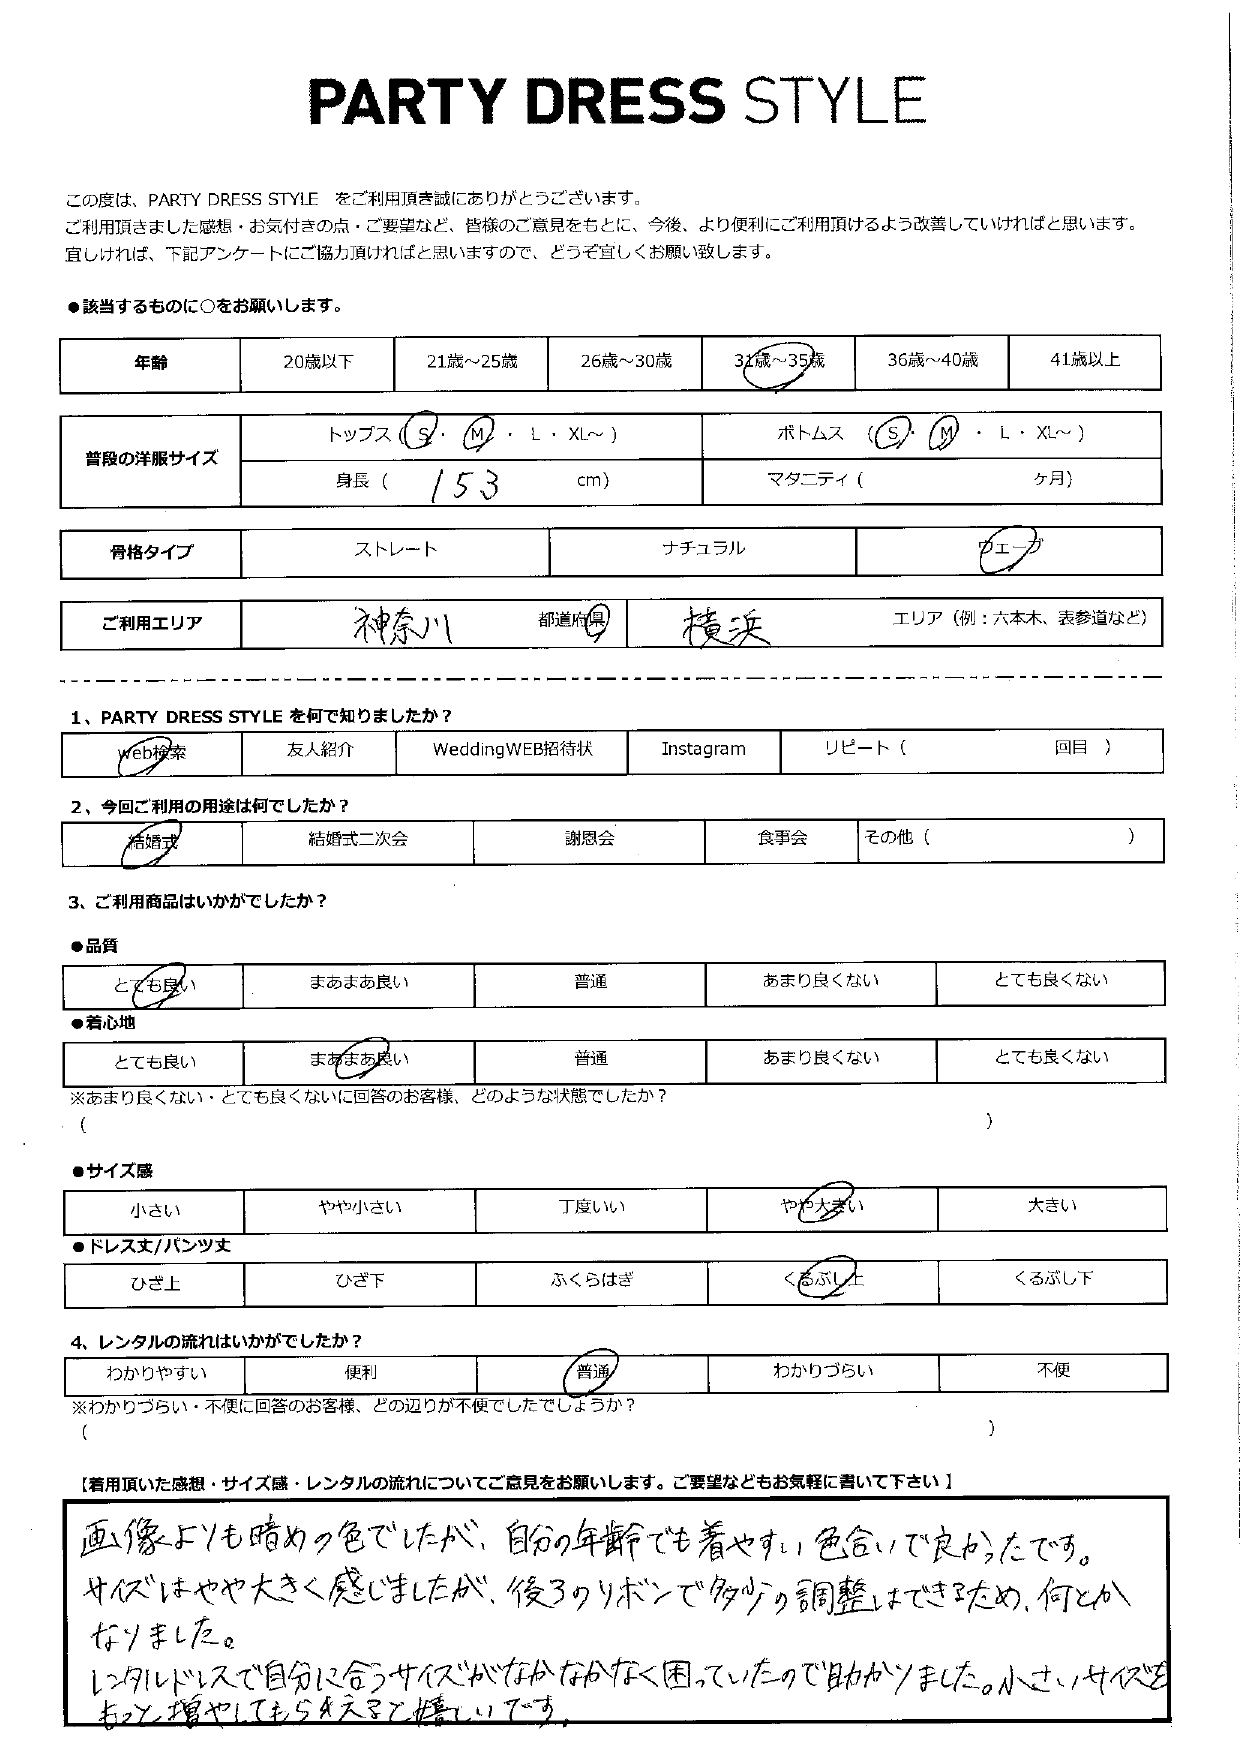 PARTY DRESS STYLE
この度は、PARTY DRESS STYLE をご利用頂き誠にありがとうございます。
ご利用頂きました感想・お気付きの点・ご要望など、皆様のご意見をもとに、今後、より便利にご利用頂けるよう改善していければと思います。
宜しければ、下記アンケートにご協力頂ければと思いますので、どうぞ宜しくお願い致します。
●該当するものに○をお願いします。
年齢 20歳以下 21歳～25歳 26歳～30歳 31歳～35歳 36歳～40歳 41歳以上
普段の洋服サイズ トップス（ S ・ M ・ L ・ XL～ ） ボトムス （ S ・ M ・ L ・ XL～ ）
身長（ 153 cm） マタニティ（ ヶ月）
骨格タイプ ストレート ナチュラル ウェーブ
ご利用エリア 神奈川 都道府県 横浜 エリア（例：六本木、表参道など）
1、PARTY DRESS STYLE を何で知りましたか？
Web検索 友人紹介 WeddingWEB招待状 Instagram リピート（ 回目 ）
2、今回ご利用の用途は何でしたか？
結婚式 結婚式二次会 謝恩会 食事会 その他（ ）
3、ご利用商品はいかがでしたか？
●品質
とても良い まあまあ良い 普通 あまり良くない とても良くない
●着心地
とても良い まあまあ良い 普通 あまり良くない とても良くない
※あまり良くない・とても良くないに回答のお客様、どのような状態でしたか？
（ ）
●サイズ感
小さい やや小さい 丁度いい やや大きい 大きい
●ドレス丈/パンツ丈
ひざ上 ひざ下 ふくらはぎ くるぶし上 くるぶし下
4、レンタルの流れはいかがでしたか？
わかりやすい 便利 普通 わかりづらい 不便
※わかりづらい・不便に回答のお客様、どの辺りが不便でしたでしょうか？
（ ）
【着用頂いた感想・サイズ感・レンタルの流れについてご意見をお願いします。ご要望などもお気軽に書いて下さい】
画像よりも暗めの色でしたが、自分の年齢でも着やすい色合いで良かったです。
サイズはやや大きく感じましたが、後ろのリボンで多少の調整はできるため、何とか
なりました。
レンタルドレスで自分に合うサイズがなかなかなく困っていたので助かりました。小さいサイズを
もっと増やしてもらえると嬉しいです。